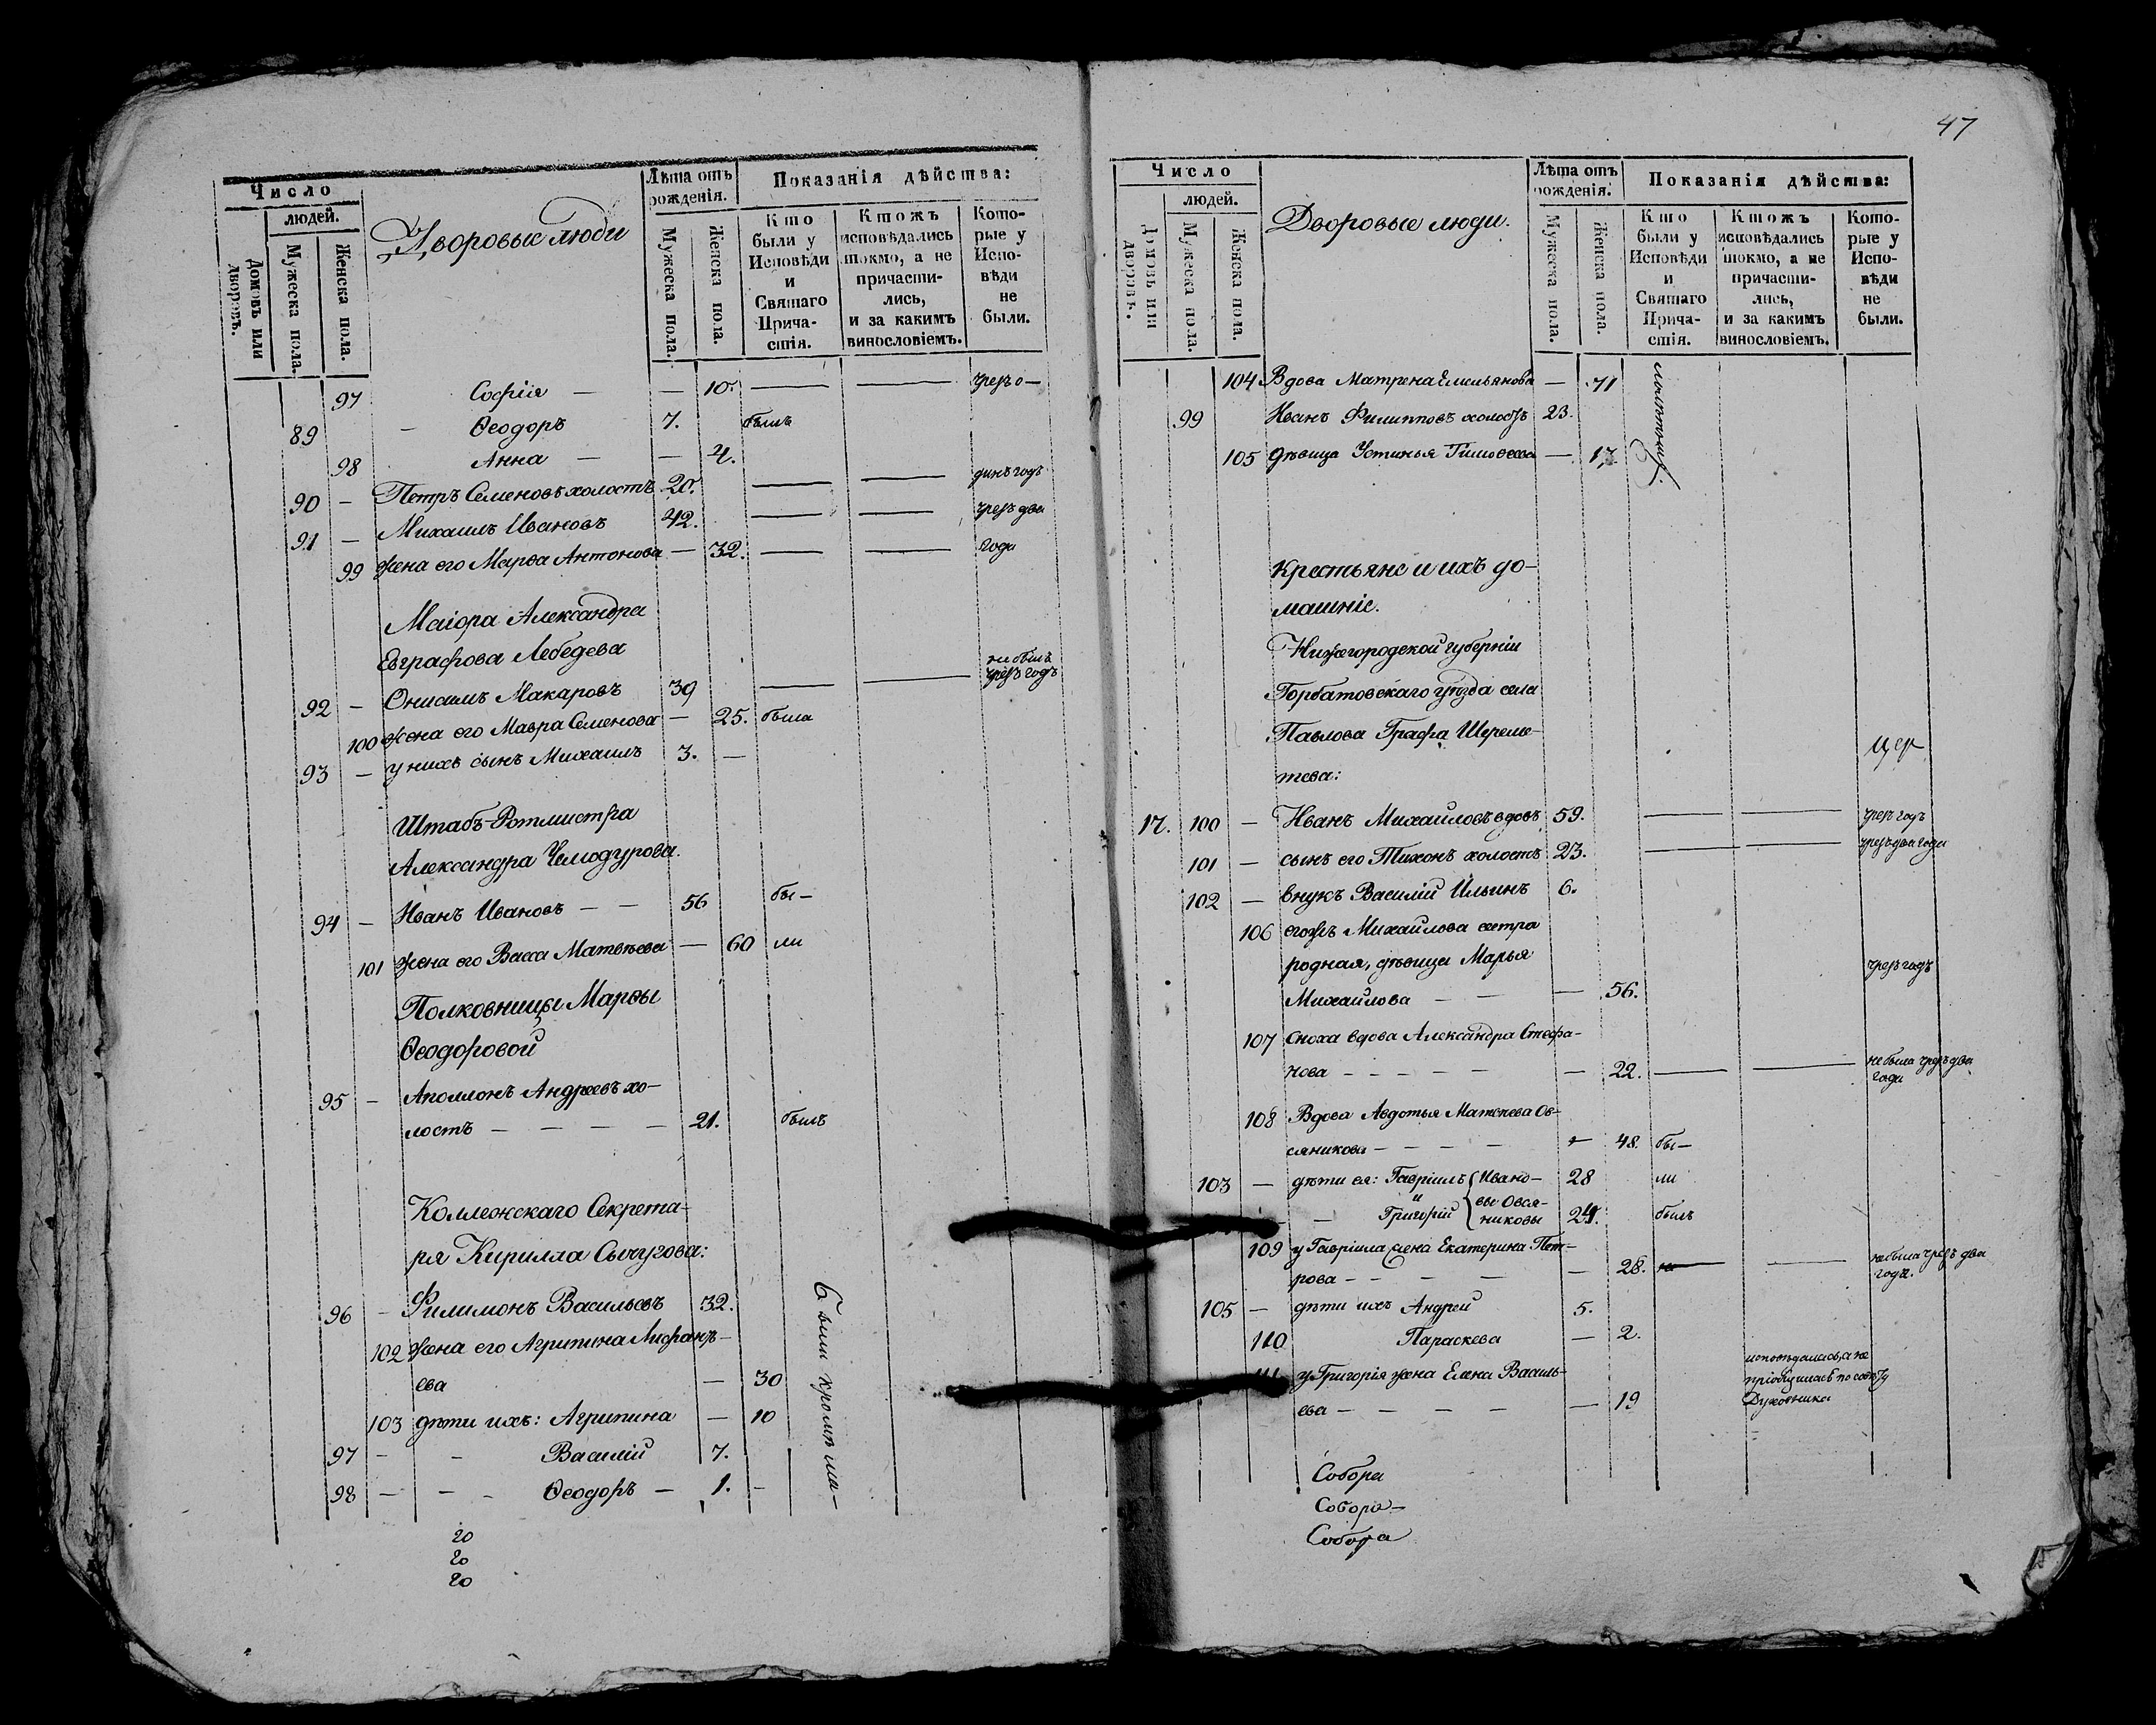 Число
людей.
Домовъ или дворовъ.
Мужеска пола.
Женска пола.
Дворовые люди
Лѣта отъ рожденія.
Мужеска пола.
Женска пола.
Показанія дѣйства:
Кто были у Исповѣди и Святаго Прича-стія.
Ктожъ исповѣдались токмо, а не причасти-лись, и за какимъ винословіемъ.
Кото-рые у Испо-вѣди не были.
97 Софія — — 10. — — чрезъ о—
89 — Ѳеодоръ 7. былъ
98 Анна — — 4.
90 — Петръ Семеновъ холостъ 20. — — динъ годъ
91 — Михаилъ Ивановъ 42. — — чрезъ два
99 жена его Марѳа Антонова — 32. — — года
Маіора Александра
Евграфова Лебедева
не былъ
92 — Онисимъ Макаровъ 39 — — чрезъ годъ
100 жена его Мавра Семенова — 25. была
93 — у нихъ сынъ Михаилъ 3. —
Штабъ-Ротмистра
Александра Чемодурова.
94 — Иванъ Ивановъ — — 56 бы—
101 жена его Васса Матвѣева — 60 ли
Полковницы Марѳы
Ѳеодоровой
95 — Аполлонъ Андреевъ хо-
лостъ — — — — 21. былъ
Коллежскаго Секрета-
ря Кирилла Сычугова:
96 — Филимонъ Васильевъ 32.
102 жена его Агрипина
ева — 30
103 дѣти ихъ: Агрипина — 10
97 — — Василій 7.
98 — — — Ѳеодоръ — 1. —
Были кромѣ ма—
20
20
20
47
Число
людей.
Домовъ или дворовъ.
Мужеска пола.
Женска пола.
Дворовые люди.
Лѣта отъ рожденія.
Мужеска пола.
Женска пола.
Показанія дѣйства:
Кто были у Исповѣди и Святаго Прича-стія.
Ктожъ исповѣдались токмо, а не причасти-лись, и за какимъ винословіемъ.
Кото-рые у Испо-вѣди не были.
104 Вдова Матрена Емельянова — 71
99 Иванъ Филипповъ холостъ 23.
105 дѣвица Устинья Тимоѳеева — 17
Крестьяне и ихъ до-
машніе.
Нижегородской губерніи
Горбатовскаго уѣзда села
Павлова Графа Шереме-
тева:
17. 100 — Иванъ Михайловъ вдовъ 59. — — чрезъ годъ
101 — сынъ его Тихонъ холостъ 23. — — чрезъ два года
102 — внукъ Василій Ильинъ 6.
106 егожъ Михайлова сестра
родная, дѣвица Марья чрезъ годъ
Михайлова — — — 56.
107 сноха вдова Александра Стефа-
нова — — — — — — 22. — — не была чрезъ два года
108 Вдова Авдотья Матвѣева Ов-
сяникова — — — — — 48. бы—
103 — дѣти ея: Гавріилъ { Ивано- 28 ли
и
— Григорій { вы Овся-никовы 24. былъ
109 у Гавріила жена Екатерина Пет-
рова — — — — — 28. — — не была чрезъ два года.
105 — дѣти ихъ Андрей 5.
110 Параскева — 2.
111 у Григорія жена Елена Василь-
ева — — — — — 19 исповѣдалась, а не пріобщилась по совѣту Духовника
Собора
Собора—
Собора